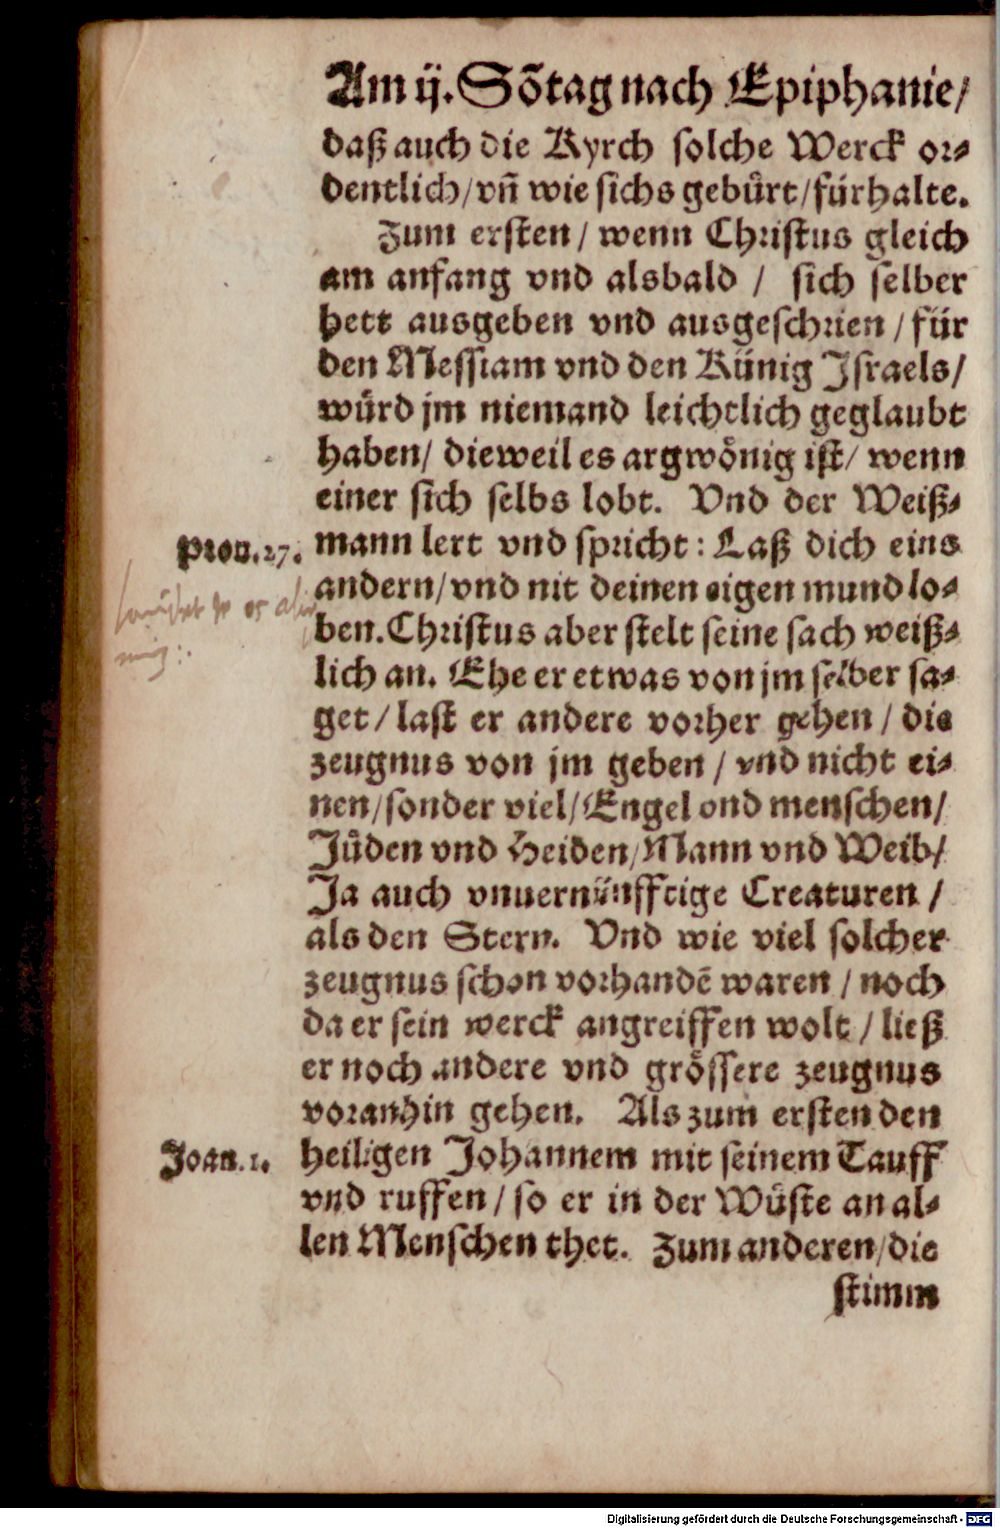 Am ij. Sõtag nach Epiphanie/
daß auch die Kyrch solche Werck or⸗
dentlich/ vñ wie sichs gebürt/ fürhalte.
Zum ersten/ wenn Christus gleich
am anfang vnd alsbald / sich selber
hett ausgeben vnd ausgeschrien / für
den Messiam vnd den Künig Israels/
würd jm niemand leichtlich geglaubt
haben/ dieweil es argwönig ist/ wenn
einer sich selbs lobt. Vnd der Weiß⸗
Prou. 27. mann lert vnd spricht: Laß dich eins
andern/ vnd nit deinen eigen mund lo⸗
ben. Christus aber stelt seine sach weiß⸗
lich an. Ehe er etwas von jm selber sa⸗
get / last er andere vorher gehen / die
zeugnus von jm geben / vnd nicht ei⸗
nen/ sonder viel/ Engel ond menschen/
Jüden vnd Heiden/ Mann vnd Weib/
Ja auch vnuernünfftige Creaturen /
als den Stern. Vnd wie viel solcher
zeugnus schon vorhandẽ waren / noch
da er sein werck angreiffen wolt / ließ
er noch andere vnd grössere zeugnus
voranhin gehen. Als zum ersten den
Joan. 1. heiligen Johannem mit seinem Tauff
vnd ruffen / so er in der Wüste an al⸗
len Menschen thet. Zum anderen/ die
stimm
Digitalisierung gefördert durch die Deutsche Forschungsgemeinschaft - DFG